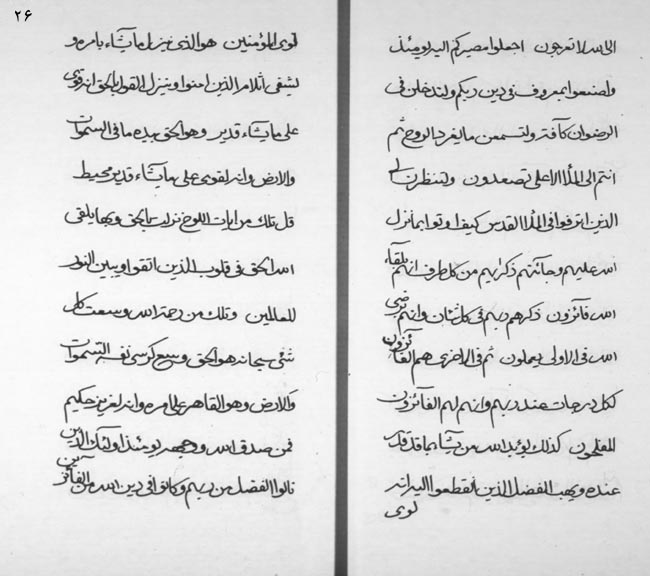 ٢٦
الى الله لا تعرجون اجعلوا مصيركم اليه يومئذ
واصنعوا بمعروف في دين ربكم ولتدخلن في
الرضوان كآفة ولتسمعن ما يغرد الروح ثم
انتم الى الملأ الاعلى تصعدون ولتنظرن الى
الذين اترفوا في الملأ القدس كيف اوتوا بما نزل
الله عليهم وجائتهم ذكرىهم من كل طرف انهم بلقاء
الله فآئزون ذكرهم ربهم في كل شأن وانهم برضى
الله في الاولى يعملون ثم في الاخرى هم الفآئزون
لكل درجات عند ربهم وانهم لهم الفآئزون
المفلحون كذلك يؤيد الله من يشآء بما قد قدر
عنده ويهب الفضل الذين انقطعوا اليه انه
لوى
لقوى المؤمنين هو الذى ينزل ما يشآء بامره و
يشفى الذين امنوا وينزل القول بالحق انه قوى
على ما يشآء قدير وهو الحق بيده ما في السموات
والارض وانه لقوى على ما يشآء قدير محيط
قل تلك من ايات اللوح نزلت بالحق وبها يلقى
الله الحق في قلوب الذين اتقوا ويبين النور
للعالمين وتلك من رحمة الله وسعت كل
شئ سبحانه هو الحق وسع كرسى السموات
والارض وهو القاهر على امره وانه لعزيز حكيم
فمن صدق الله وجهه يومئذ اولئك الذين
نالوا الفضل من ربهم وكانوا في دين الله من الفآئزين